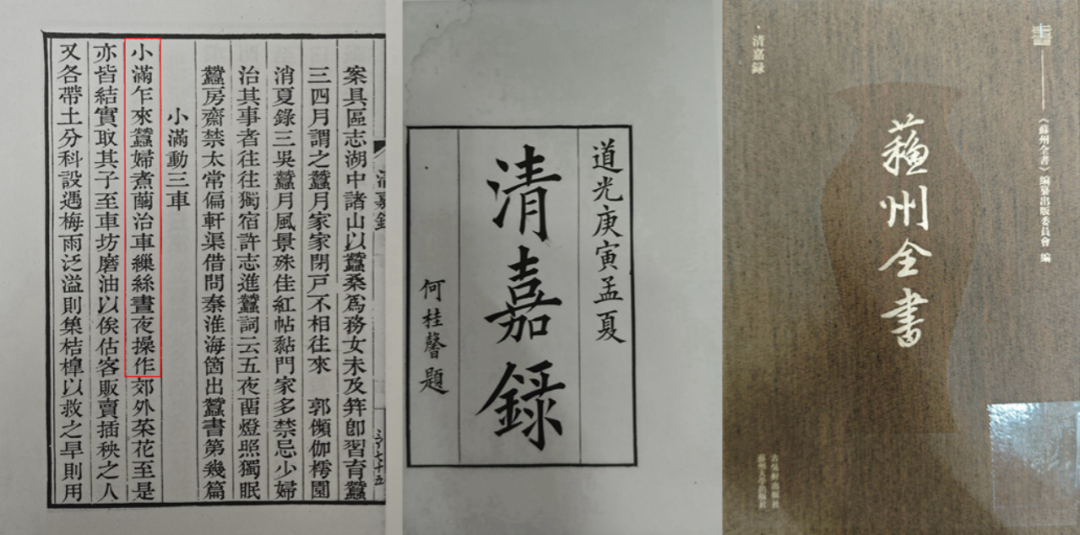 清嘉錄
案具區志湖中諸山以蠶桑爲務女未及笄卽習育蠶
三四月謂之蠶月家家閉戶不相往來 郭頻伽樗園
消夏錄三吳蠶月風景殊佳紅帖黏門家多禁忌少婦
治其事者往往獨宿許志進蠶詞云五夜畱燈照獨眠
蠶房齋禁太常偏軒渠借問秦淮海箇出蠶書第幾篇
小滿動三車
小滿乍來蠶婦煮繭治車繅絲晝夜操作郊外菜花至是
亦皆結實取其子至車坊磨油以俟估客販賣插秧之人
又各帶土分科設遇梅雨泛溢則集桔槔以救之旱則用
道光庚寅孟夏
清嘉錄
何桂馨題
《蘇州全書》編纂出版委員會 編
蘇州全書
清嘉錄
古吳軒出版社
蘇州大學出版社